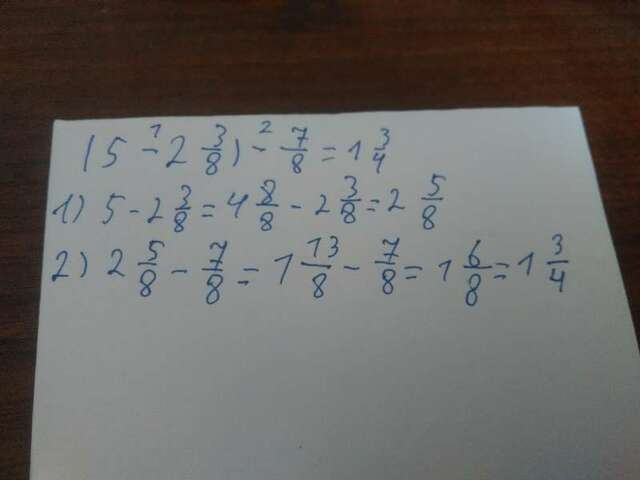 (5 -¹ 2 3/8) -² 7/8 = 1 3/4
1) 5 - 2 3/8 = 4 8/8 - 2 3/8 = 2 5/8
2) 2 5/8 - 7/8 = 1 13/8 - 7/8 = 1 6/8 = 1 3/4